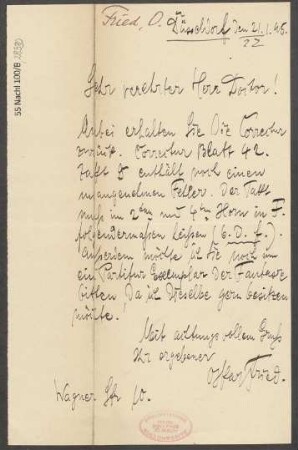 55 Nachl 100/B
Fried, O.
Düsseldorf den 21.1.95.
22
Sehr verehrter Herr Doctor!
Anbei erhalten Sie Die Correctur
zurück. Correctur Blatt 42.
enthält noch einen
unangenehmen Fehler. Der Takt
muß im 2ten und 4ten Horn in F.
folgendermaßen heißen
Außerdem möchte ich Sie noch um
ein Partitur Exemplar der Fantasie
bitten, Da ich Dieselbe gern besitzen
möchte.
Mit achtungsvollem Gruß
Ihr ergebener
Oskar Fried.
Wagner Str. 10.